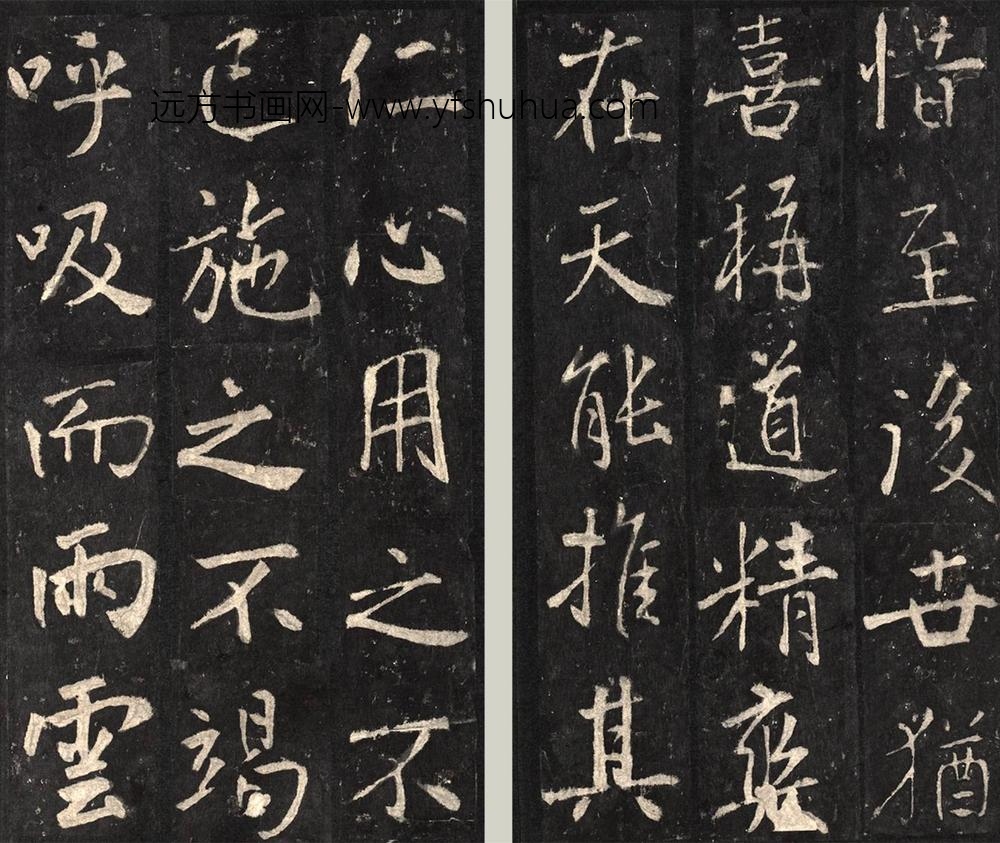 惜至後世猶
喜稱道精爽
在天能推其
仁心用之不
已施之不竭
呼吸而雨雲
远方书画网-www.yfshuhua.com